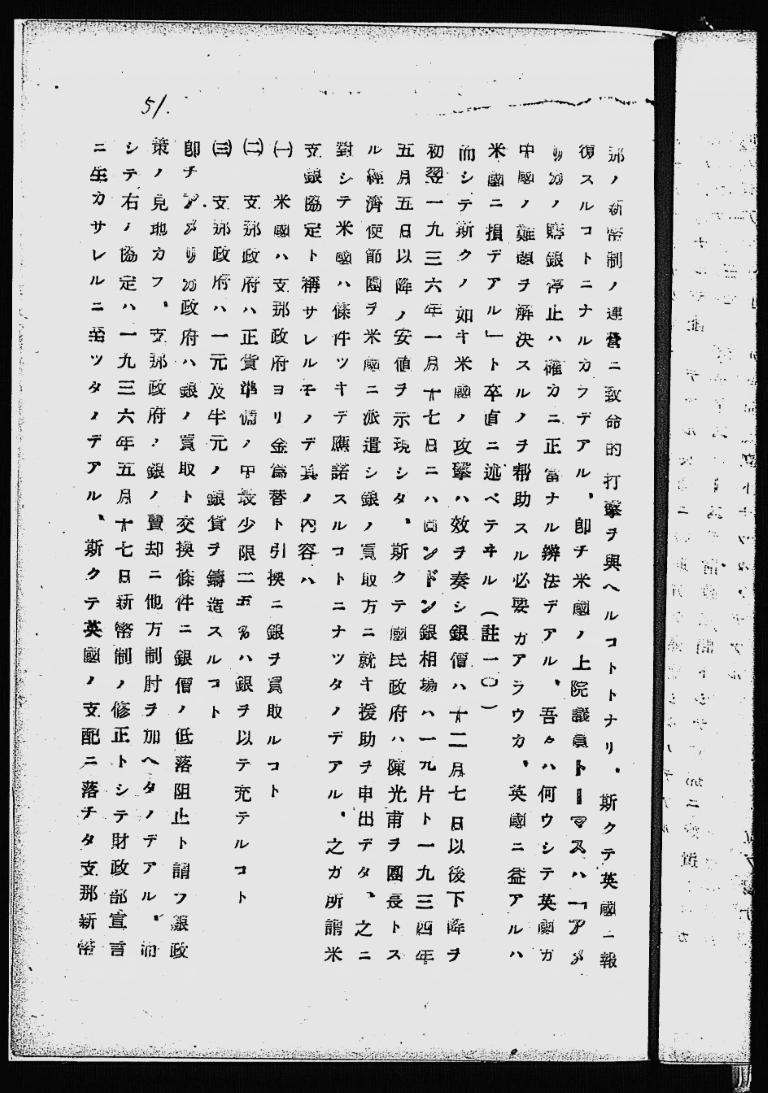 51.
那ノ新幣制ノ運營ニ致命的打擊ヲ與ヘルコトトナリ、斯クテ英國ニ報
復スルコトニナルカラデアル、卽チ米國ノ上院議員トーマスハ「アメ
リカノ購銀停止ハ確カニ正當ナル辨法デアル、吾々ハ何ウシテ英國ガ
中國ノ難題ヲ解決スルノヲ帮助スル必要ガアラウカ、英國ニ益アルハ
米國ニ損デアル」ト卒直ニ述ベテヰル（註一〇）
而シテ斯クノ如キ米國ノ攻擊ハ效ヲ奏シ銀價ハ十二月七日以後下降ヲ
初翌一九三六年一月十七日ニハロンドン銀相場ハ一九片ト一九三四年
五月五日以降ノ安値ヲ示現シタ、斯クテ國民政府ハ陳光甫ヲ團長トス
ル經濟使節團ヲ米國ニ派遣シ銀ノ買取方ニ就キ援助ヲ申出デタ、之ニ
對シテ米國ハ條件ツキデ應諾スルコトニナツタノデアル、之ガ所謂米
支銀協定ト稱サレルモノデ其ノ內容ハ
㈠　米國ハ支那政府ヨリ金爲替ト引換ニ銀ヲ買取ルコト
㈡　支那政府ハ正貨準備ノ中最少限二五%ハ銀ヲ以テ充テルコト
㈢　支那政府ハ一元及半元ノ銀貨ヲ鑄造スルコト
卽チアメリカ政府ハ銀ノ買取ト交換條件ニ銀價ノ低落阻止ト謂フ銀政
策ノ見地カラ、支那政府ノ銀ノ賣却ニ他方制肘ヲ加ヘタノデアル、而
シテ右ノ協定ハ一九三六年五月十七日新幣制ノ修正トシテ財政部宣言
ニ生カサレルニ至ツタノデアル、斯クテ英國ノ支配ニ落チタ支那新幣